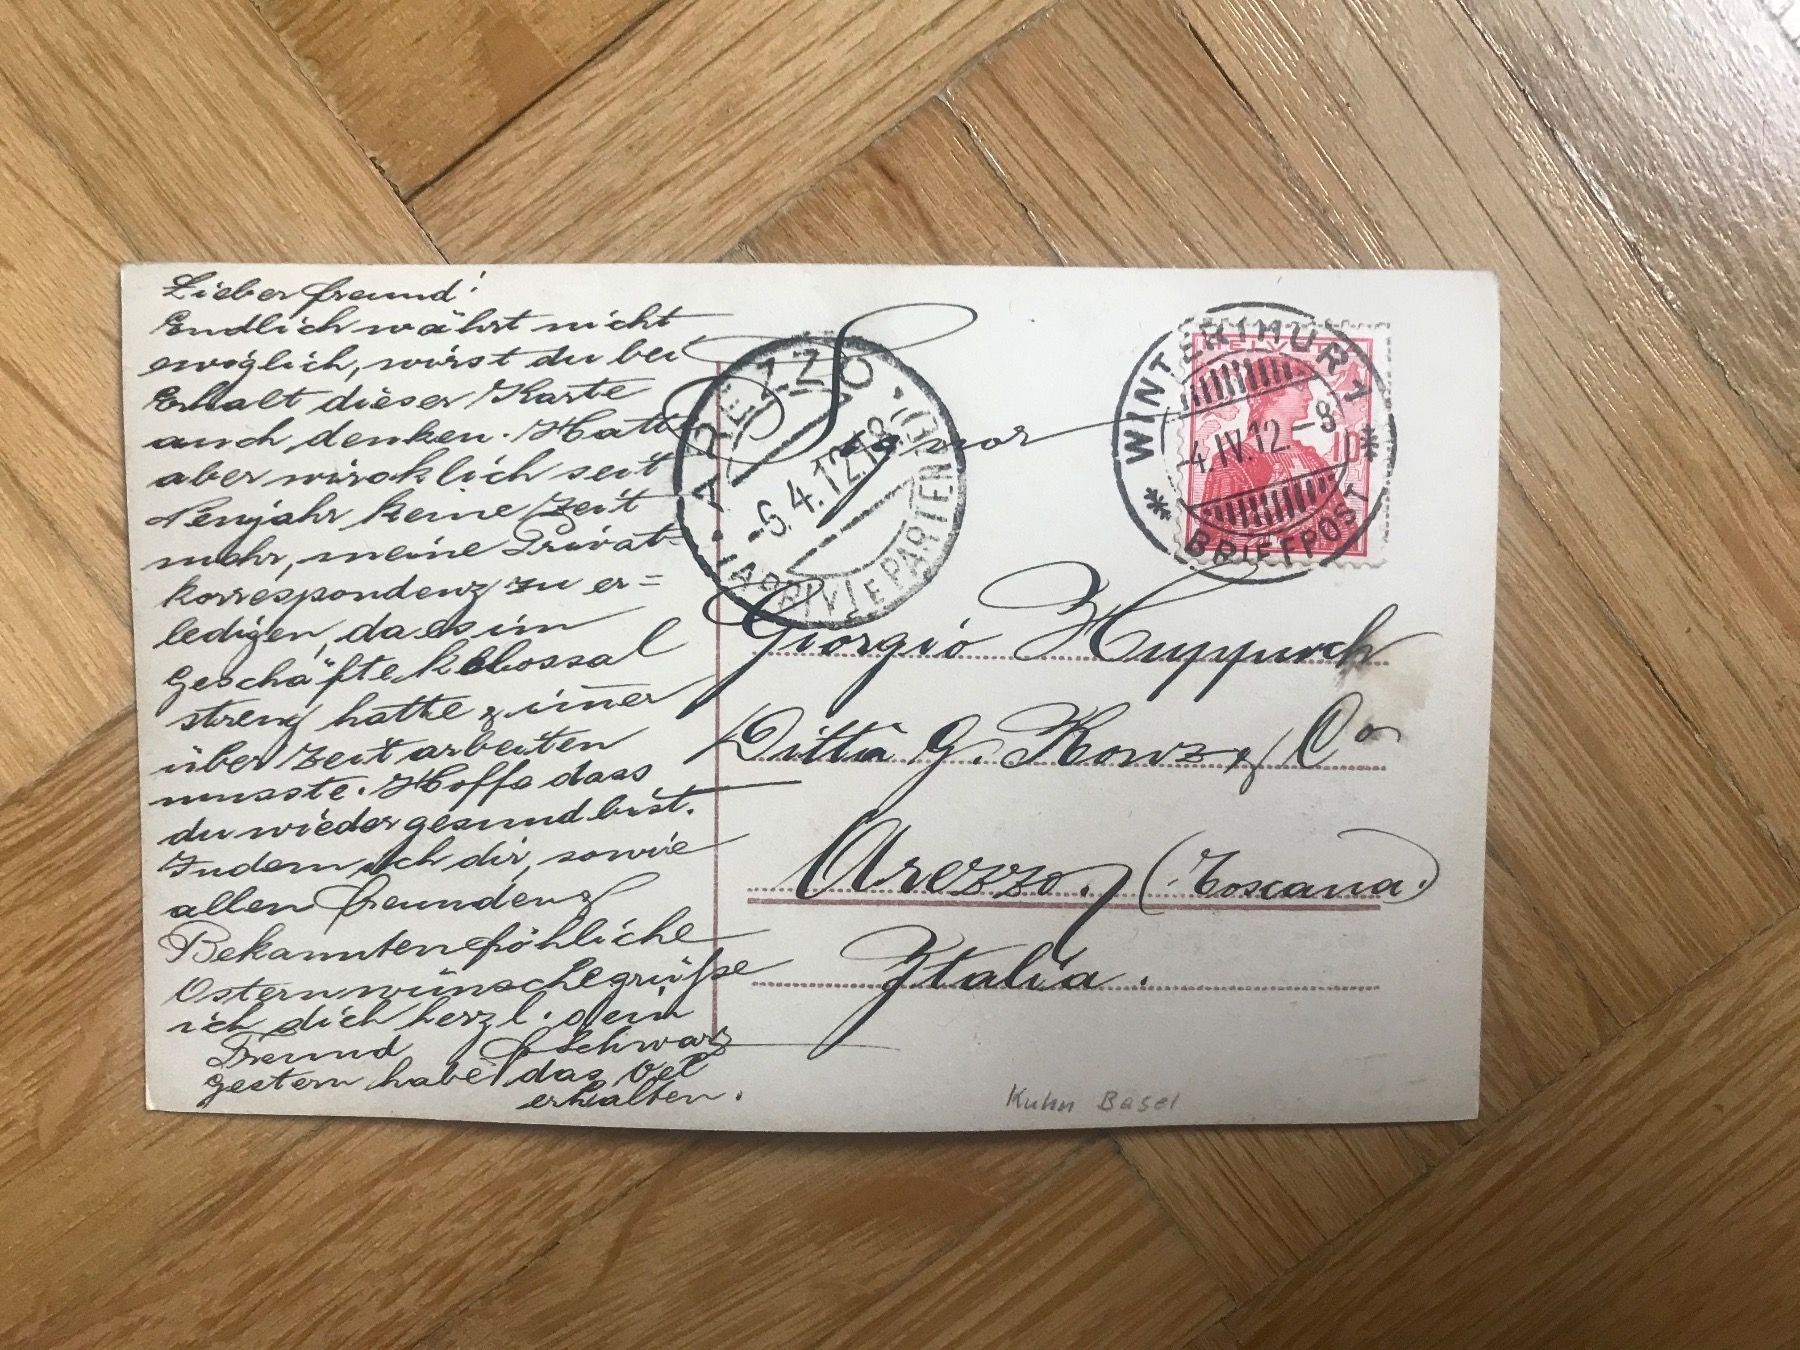 Lieber Freund!
Endlich währt nicht
ewiglich, wirst du bei
Erhalt dieser Karte
auch denken. Hatte
aber wirklich seit
Neujahr keine Zeit
mehr, meine Privat-
korrespondenz zu er=
ledigen, da es im
Geschäfte kolossal
streng hatte & im̅er
über Zeit arbeiten
musste. Hoffe dass
du wieder gesund bist.
Indem ich dir, sowie
allen Freunden &
Bekannten fröhliche
Osternwünsche grüsse
ich dich herzl. dein
Freund Schwarz
Gestern habe das
erhalten.
AREZZO
-6.4.12.18
(ARRIVI E PARTENZE)
WINTERTHUR 1
-4.IV.12.-8
BRIEFPOST
HELVETIA
10
Signor
Giorgio
Ditta G. Konz & Co
Arezzo. (Toscana.)
Italia.
Kuhn Basel